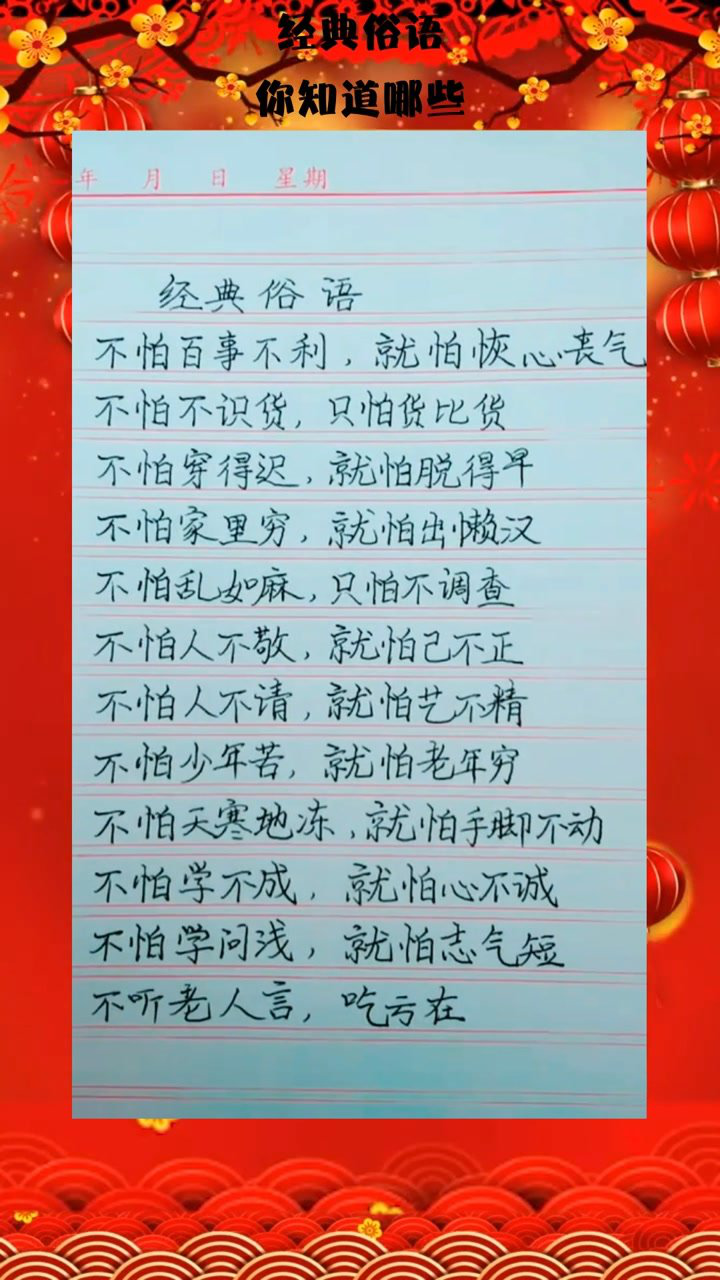 经典俗语
你知道哪些
年 月 日 星期
经典俗语
不怕百事不利，就怕恢心丧气
不怕不识货，只怕货比货
不怕穿得迟，就怕脱得早
不怕家里穷，就怕出懒汉
不怕乱如麻，只怕不调查
不怕人不敬，就怕己不正
不怕人不请，就怕艺不精
不怕少年苦，就怕老年穷
不怕天寒地冻，就怕手脚不动
不怕学不成，就怕心不诚
不怕学问浅，就怕志气短
不听老人言，吃亏在